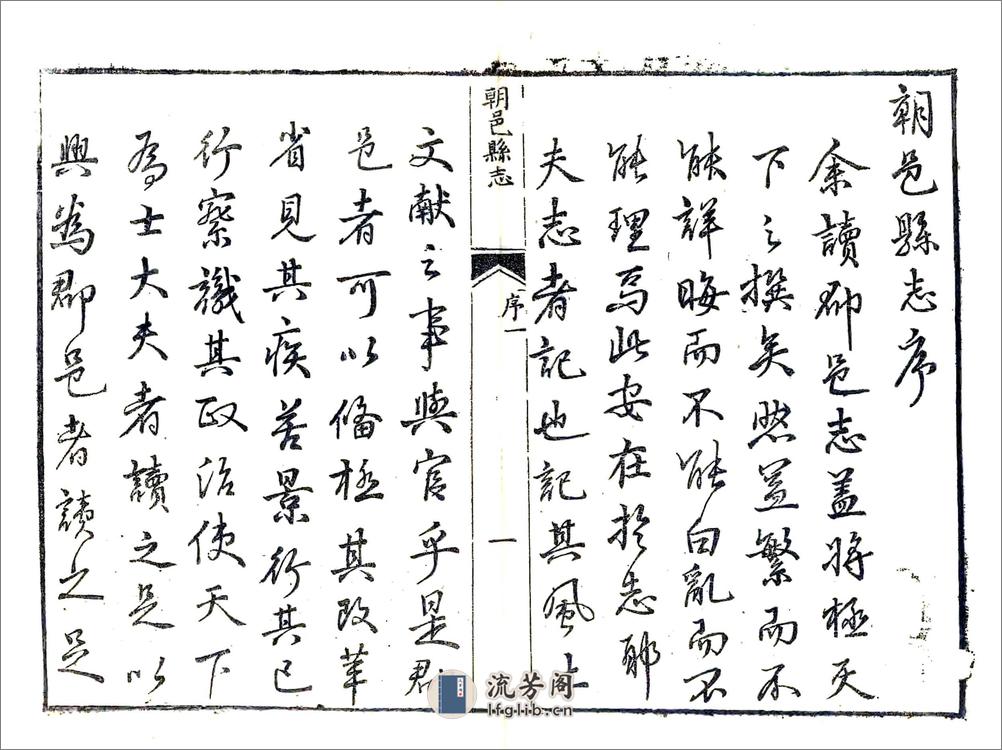 朝邑縣志序
余讀郡邑志蓋將極天
下之撰矣然益繁而不
能詳晦而不能白亂而不
能理焉此安在於志耶
夫志者記也記其風土
朝邑縣志
序一
一
文献之事與官乎是郡
邑者可以備極其改革
省見其疾苦景行其已
行察識其政治使天下
為士大夫者讀之足以
興為郡邑者讀之足
流芳阁
lfglib.cn